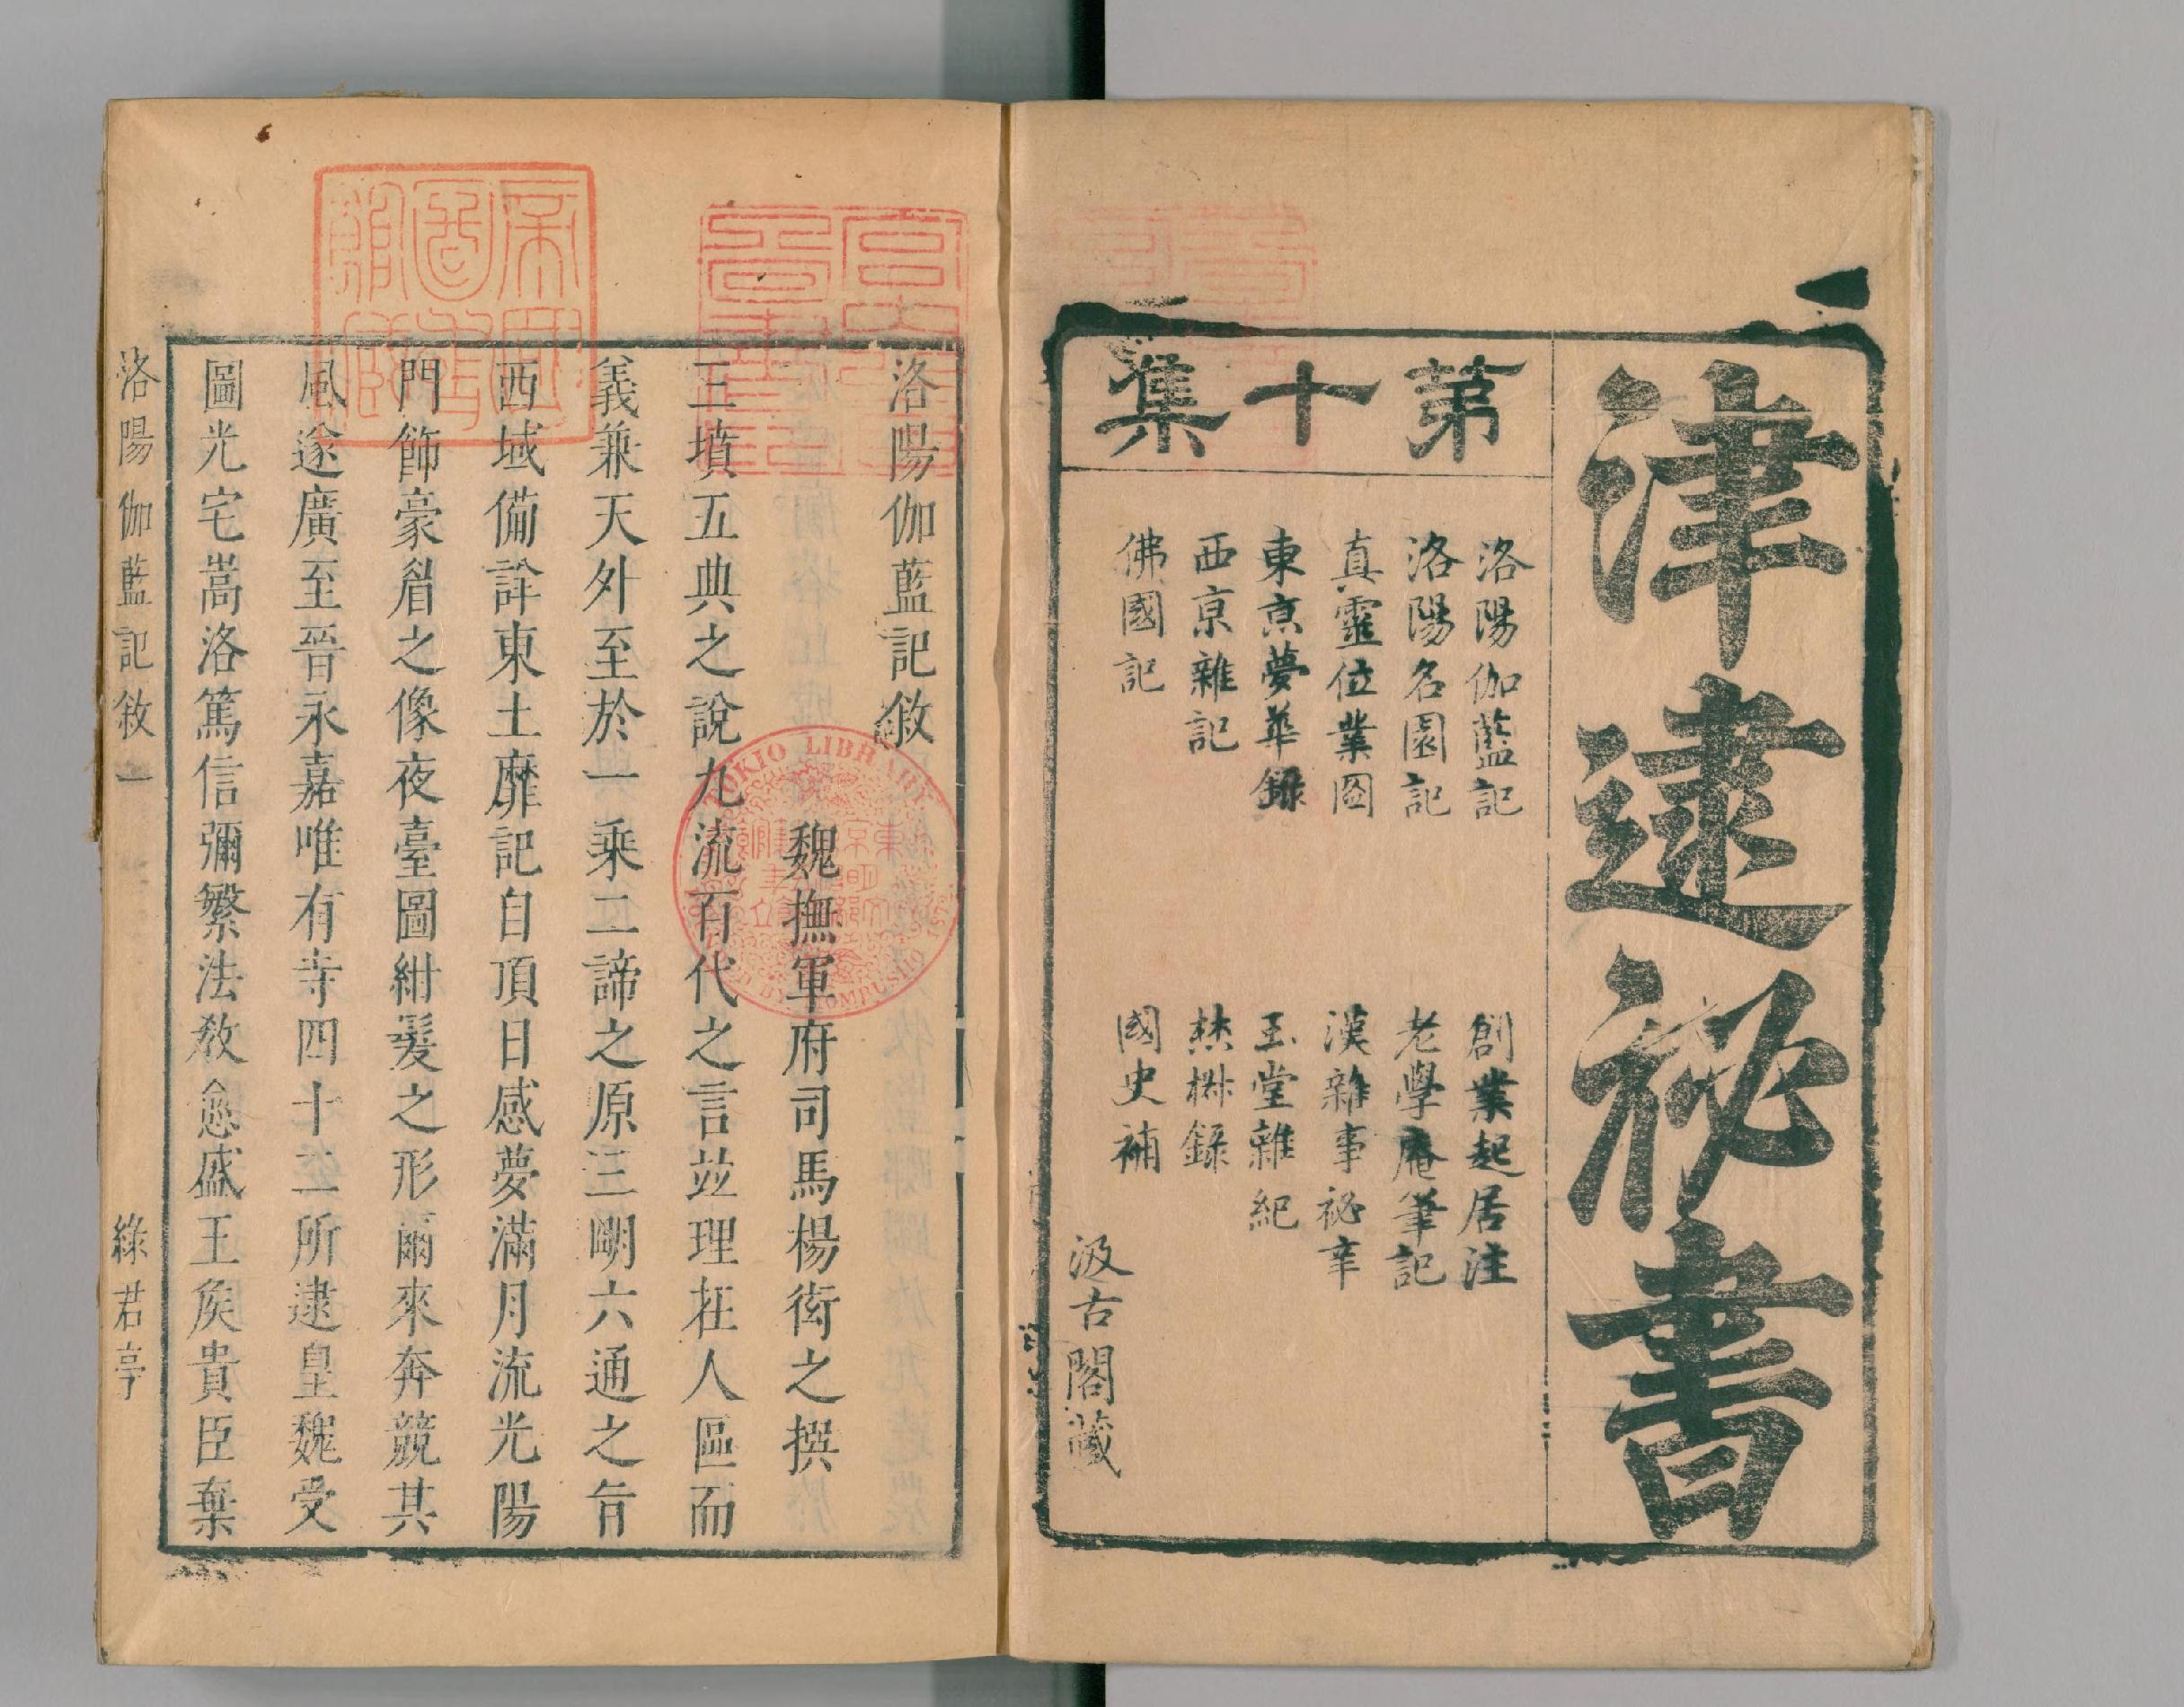 津逮祕書
第十集
洛陽伽藍記
洛陽名園記
真靈位業圖
東京夢華錄
西京雜記
佛國記
創業起居注
老學庵筆記
漢雜事祕辛
玉堂雜紀
焚椒錄
國史補
汲古閣藏
洛陽伽藍記敘
魏撫軍府司馬楊衒之撰
三墳五典之說九流百代之言竝理在人區而
義兼天外至於一乘二諦之原三明六通之旨
西域備詳東土靡記自頂日感夢滿月流光陽
門飾豪眉之像夜臺圖紺髮之形爾來奔競其
風遂廣至晉永嘉唯有寺四十二所逮皇魏受
圖光宅嵩洛篤信彌繁法敎愈盛王矦貴臣棄
洛陽伽藍記敘 一 綠君亭
帝國圖書館藏
TOKIO LIBRARY